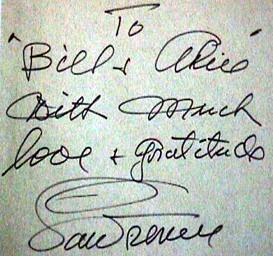 To
"Bill + Alice"
With Much
love + gratitude
Lawrence